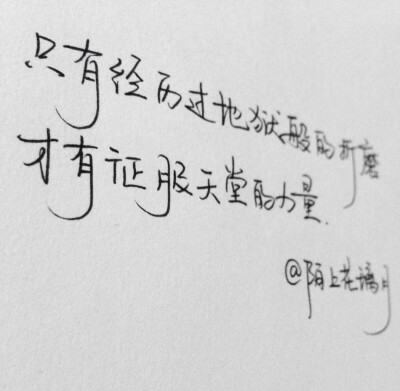 只有经历过地狱般的折磨
才有征服天堂的力量.
@陌上花璃月